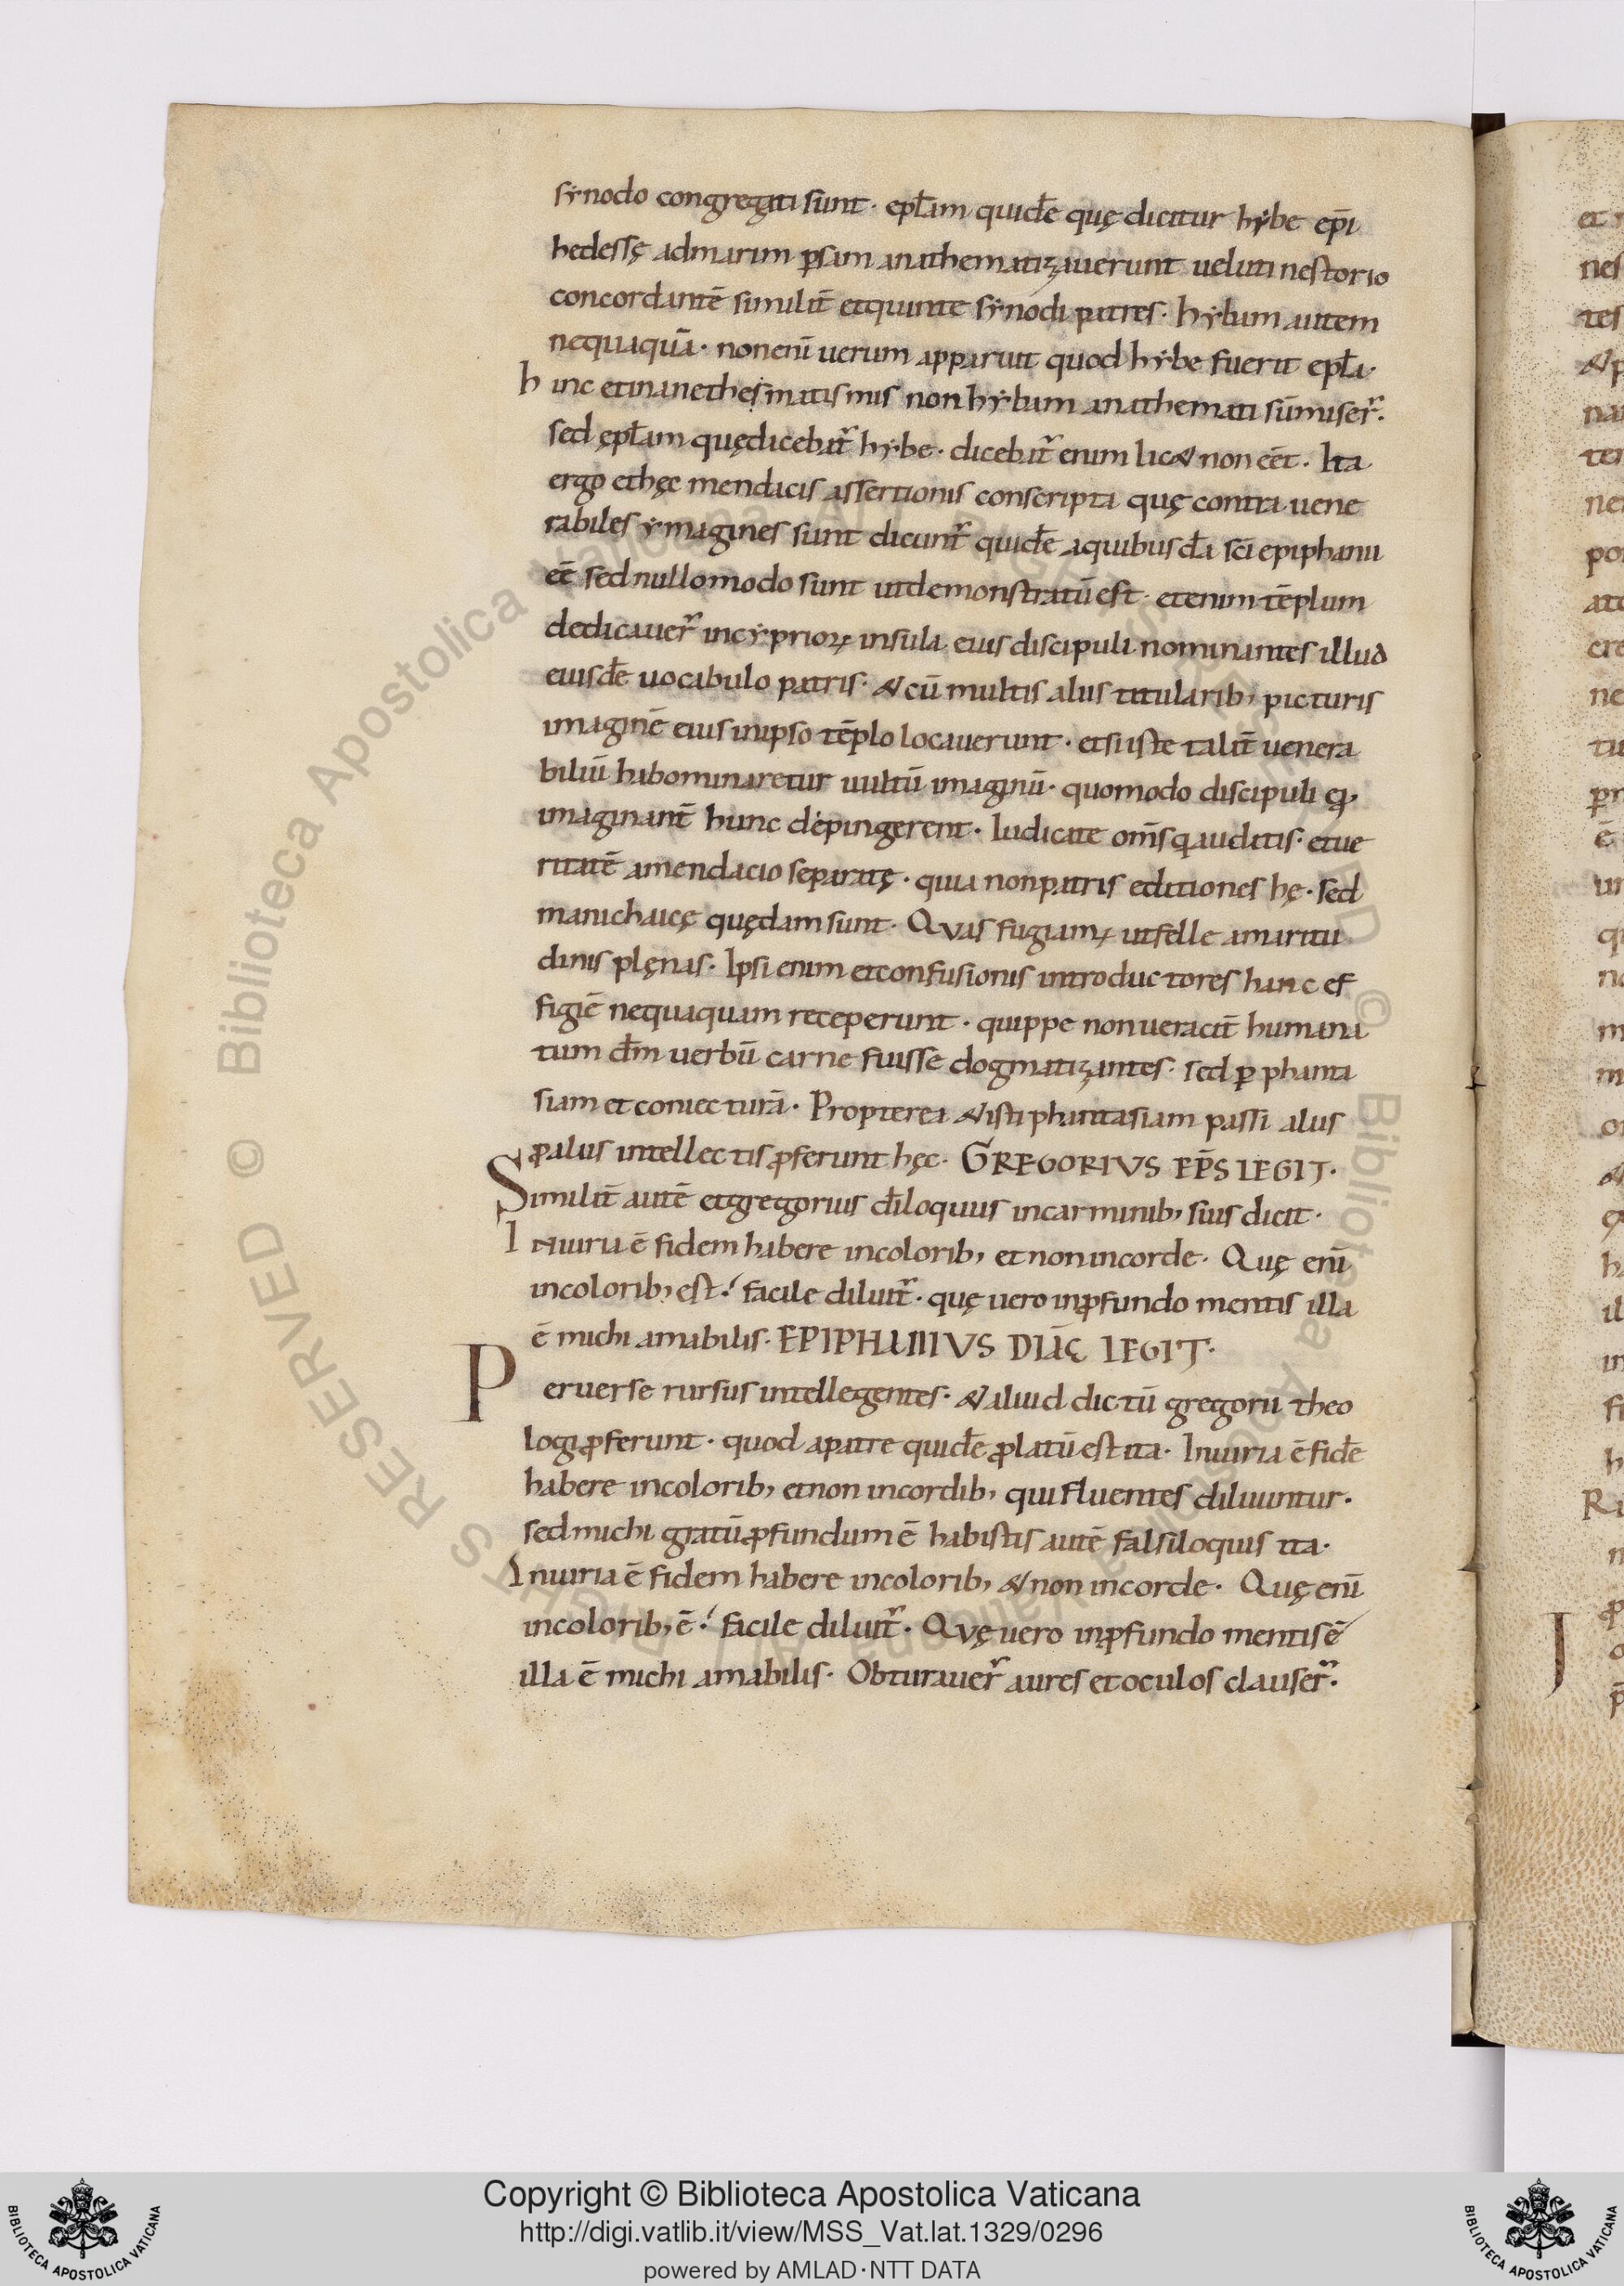 sẏnodo congregati sunt· epl̄am quidē quę dicitur hẏbe ep̄i
hedessę admarim ꝑsam anathematizauerunt ueluti nestorio
concordantē similit̄ etquinte sẏnodi patres· hẏbam autem
nequaquā· nonenī uerum apparuit quod hẏbe fuerit epl̄a·
hinc etinanethęmatismis non hẏbam anathemati sūmiser̃·
sed ępl̄am quędicebat̃ hẏbe· dicebat̃ enim lic& non eēt· Ita
ergo ethęc mendacis assertionis conscripta quę contra uene
rabiles ẏmagines sunt dicunt̃ quidē aquibusdā sc̄i epiphanii
eē sed nullomodo sunt utdemonstratū est· etenim tēplum
dedicauer̃ incẏprioꝝ insula eius discipuli nominantes illud
eiusdē uocabulo patris· & cū multis aliis titularib; picturis
imaginē eius inipso tēplo locauerunt· etsi iste talit̄ uenera
biliū habominaretur uultū imaginū· quomodo discipuli eꝰ
imaginant̄ hunc depingerent· Iudicate om̄s q̄ auditis· etue
ritatē amendacio separatę· quia nonpatris editiones hę· sed
manichaicę quędam sunt· QVas fugiamꝰ utfelle amaritu
dinis plęnas· Ipsi enim etconfusionis introductores hanc ef
figiē nequaquam receperunt· quippe non ueracit̄ humana
tum dm̄ uerbū carne fuisse dogmatizantes· sed ꝑ phanta
siam et coniecturā· Propterea &isti phantasiam passi aliis
ꝓaliis intellectis ꝓferunt hęc· GREGORIVS EP̄S LEGIT·
Similit̄ autē etgregorius dīloquus incarminib; suis dicit·
Iniuria ē fidem habere incolorib; et nonincorde· Quę enī
incolorib; est·́ facile diluit̃· quę uero inꝓfundo mentis illa
ē michi amabilis· EPIPHANIVS DIAC̄ LEGIT·
Peruerse rursus intellegentes· &aliud dictū gregorii theo
logi ꝓferunt· quod apatre quidē ꝓlatū est ita· Iniuria ē fidē
habere incolorib; etnon incordib; qui fluentes diluuntur·
sed michi gratū ꝓfundum ē habistis autē falsiloquis ita·
Iniuria ē fidem habere incolorib; & non incorde· Quę enī
incolorib; ē·́ facile diluit̃· QVę uero inꝓfundo mentis ē
illa ē michi amabilis· Obturauer̃ aures et oculos clauser̃·
Copyright © Biblioteca Apostolica Vaticana
http://digi.vatlib.it/view/MSS_Vat.lat.1329/0296
powered by AMLAD·NTT DATA
BIBLIOTECA APOSTOLICA VATICANA
BIBLIOTECA APOSTOLICA VATICANA